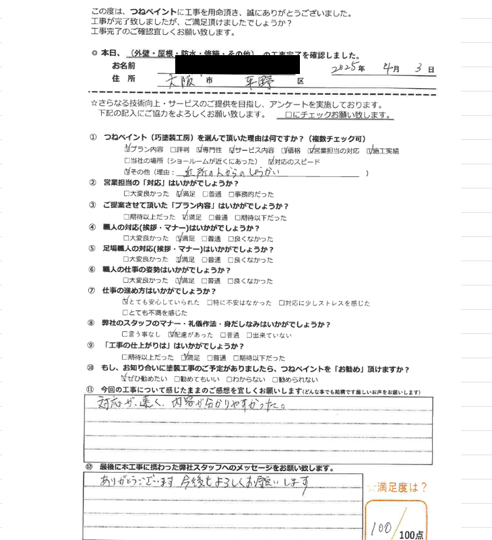 この度は、つねペイントに工事を用命頂き、誠にありがとうございました。
工事が完了致しましたが、ご満足頂けましたでしょうか?
工事完了のご確認宜しくお願い致します。
本日、(外壁・屋根・防水・修繕・その他)の工事完了を確認しました。
お名前 2025年 4月 3日
住所 大阪 市 平野 区
☆さらなる技術向上・サービスのご提供を目指し、アンケートを実施しております。
下記の記入にご協力をよろしくお願い致します。 □にチェックお願い致します。
① つねペイント(巧塗装工房)を選んで頂いた理由は何ですか?(複数チェック可)
☑プラン内容 □評判 ☑専門性 ☑サービス内容 ☑価格 ☑営業担当の対応 ☑施工実績
□当社の場所(ショールームが近くにあった) ☑対応のスピード
☑その他(理由: 近所の人からのしょうかい )
② 営業担当の「対応」はいかがでしょうか?
□大変良かった ☑満足 □普通 □事務的だった
③ ご提案させて頂いた「プラン内容」はいかがでしょうか?
□期待以上だった ☑満足 □普通 □期待以下だった
④ 職人の対応(挨拶・マナー)はいかがでしょうか?
□大変良かった ☑満足 □普通 □良くなかった
⑤ 足場職人の対応(挨拶・マナー)はいかがでしょうか?
□大変良かった ☑満足 □普通 □良くなかった
⑥ 職人の仕事の姿勢はいかがでしょうか?
□大変良かった ☑満足 □普通 □良くなかった
⑦ 仕事の進め方はいかがでしょうか?
☑とても安心していられた □特に不安はなかった □対応に少しストレスを感じた
□とても不満を感じた
⑧ 弊社のスタッフのマナー・礼儀作法・身だしなみはいかがでしょうか?
□言う事なし ☑配慮があった □普通 □出来ていない
⑨ 「工事の仕上がり」はいかがでしょうか?
□期待以上だった ☑満足 □普通 □期待以下だった
⑩ もし、お知り合いに塗装工事のご予定がありましたら、つねペイントを「お勧め」頂けますか?
☑ぜひ勧めたい □勧めてもいい □わからない □勧められない
⑪ 今回の工事について感じたままのご感想を宜しくお願いします(どんな事でも結構です厳しいお声をお願いします)
対応が、速く、内容が分かりやすかった。
⑫ 最後に本工事に携わった弊社スタッフへのメッセージをお願い致します。
ありがとうございます 今後もよろしくお願いします
満足度は?
100/100点